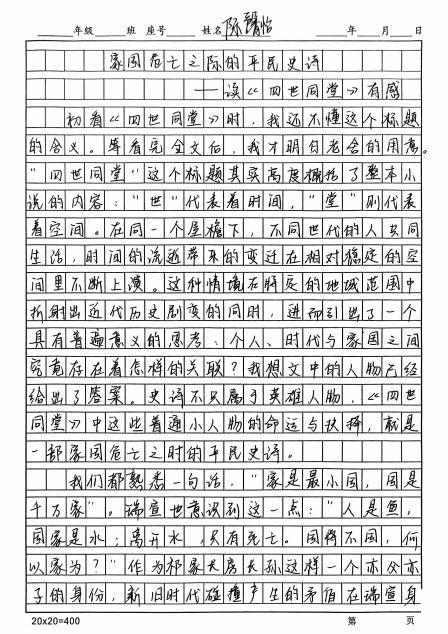 年级 班 座号 姓名 陈馨怡 年 月 日
家国危亡之际的平民史诗
——读《四世同堂》有感
初看《四世同堂》时，我还不懂这个标题
的含义。等看完全文后，我才明白老舍的用意。
"四世同堂"这个标题其实高度概括了整本小
说的内容："世"代表着时间，"堂"则代表
着空间。在同一个屋檐下，不同世代的人共同
生活，时间的流逝带来的变迁在相对稳定的空
间里不断上演。这种情境在特定的地域范围中
折射出近代历史剧变的同时，进而引出了一个
具有普遍意义的思考：个人、时代与家国之间
究竟存在着怎样的关联？我想文中的人物已经
给出了答案。史诗不只属于英雄人物，《四世
同堂》中这些普通小人物的命运与抉择，就是
一部家国危亡之时的平民史诗。
我们都熟悉一句话，"家是最小国，国是
千万家"。瑞宣也意识到这一点："人是鱼，
国家是水；离开水，只有死亡。国将不国，何
以家为？"作为祁家长房长孙这样一个亦父亦
子的身份，新旧时代碰撞产生的矛盾在瑞宣身
20×20=400 第 页